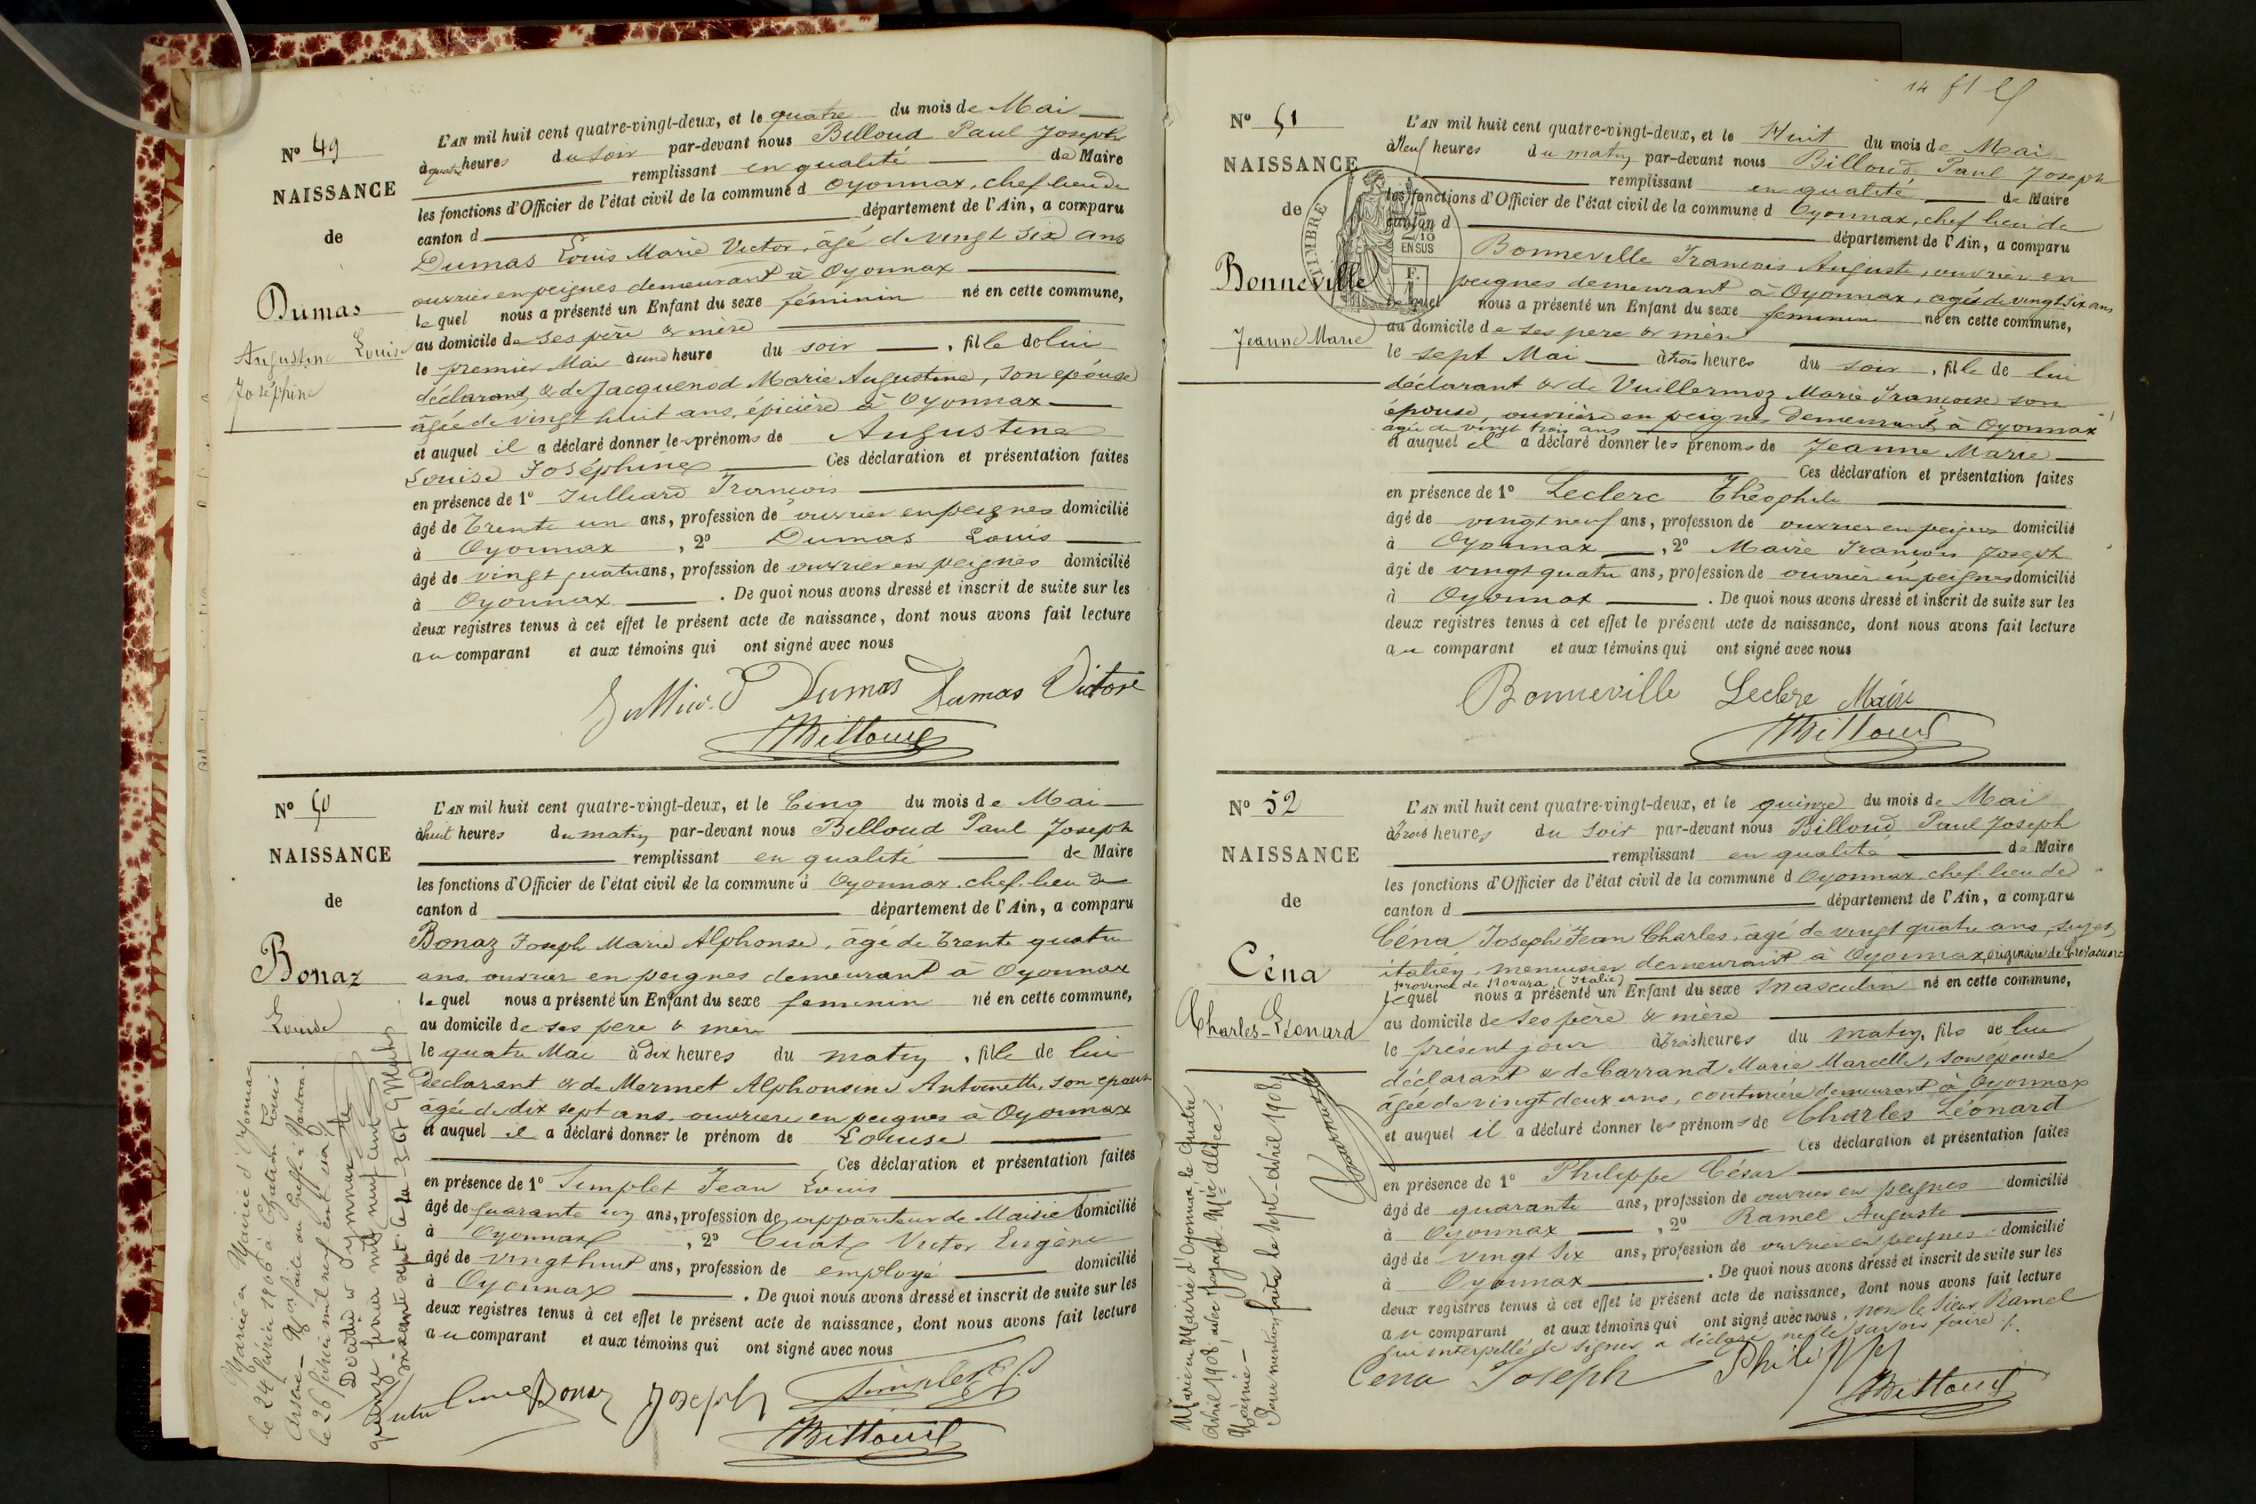 Nº 49
NAISSANCE
de
Dumas
Augustine Louise
Joséphine
L'AN mil huit cent quatre-vingt-deux, et le quatre du mois de Mai
à quatre heures du soir par-devant nous Billoud Paul Joseph
remplissant en qualité de Maire
les fonctions d'Officier de l'état civil de la commune d Oyonnax, chef lieu de
canton d département de l'Ain, a comparu
Dumas Louis Marie Victor, âgé de vingt six ans
ouvrier en peignes demeurant à Oyonnax
lequel nous a présenté un Enfant du sexe féminin né en cette commune,
au domicile de ses père & mère
le premier Mai à une heure du soir, fille de lui
déclarant & de Jacquenod Marie Augustine, son épouse
âgée de vingt huit ans, épicière à Oyonnax
et auquel il a déclaré donner les prénoms de Augustine
Louise Joséphine Ces déclaration et présentation faites
en présence de 1º Julliard François
âgé de Trente un ans, profession de ouvrier en peignes domicilié
à Oyonnax, 2º Dumas Louis
âgé de vingt quatre ans, profession de ouvrier en peignes domicilié
à Oyonnax. De quoi nous avons dressé et inscrit de suite sur les
deux registres tenus à cet effet le présent acte de naissance, dont nous avons fait lecture
au comparant et aux témoins qui ont signé avec nous
Dumas Dumas Victor
Billoud
Nº 50
NAISSANCE
de
Bonaz
Louise
L'AN mil huit cent quatre-vingt-deux, et le Cinq du mois de Mai
à huit heures du matin par-devant nous Billoud Paul Joseph
remplissant en qualité de Maire
les fonctions d'Officier de l'état civil de la commune d Oyonnax, chef lieu de
canton d département de l'Ain, a comparu
Bonaz Joseph Marie Alphonse, âgé de Trente quatre
ans, ouvrier en peignes demeurant à Oyonnax
lequel nous a présenté un Enfant du sexe feminin né en cette commune,
au domicile de ses pere & mère
le quatre Mai à dix heures du matin, fille de lui
Déclarant & de Mermet Alphonsine Antoinette, son epouse
âgée de dix sept ans, ouvriere en peignes à Oyonnax
et auquel il a déclaré donner le prénom de Louise
Ces déclaration et présentation faites
en présence de 1º Simplet Jean Louis
âgé de quarante un ans, profession de appariteur de Mairie domicilié
à Oyonnax, 2º Victor Eugène
âgé de vingt huit ans, profession de employé domicilié
à Oyonnax. De quoi nous avons dressé et inscrit de suite sur les
deux registres tenus à cet effet le présent acte de naissance, dont nous avons fait lecture
au comparant et aux témoins qui ont signé avec nous
Bonaz Joseph Simplet
Billoud
Mariée en Mairie d'Oyonnax
le 24 février 1906 à Louis
Arsène
le 26 février mil neuf cent
Décédée à Oyonnax le
quinze février mil neuf cent
soixante sept
14 51
Nº 51
NAISSANCE
de
Bonneville
Jeanne Marie
TIMBRE
2/10
EN SUS
L'AN mil huit cent quatre-vingt-deux, et le Huit du mois de Mai
à Neuf heures du matin par-devant nous Billoud Paul Joseph
remplissant en qualité de Maire
les fonctions d'Officier de l'état civil de la commune d Oyonnax, chef lieu de
canton d département de l'Ain, a comparu
Bonneville François Auguste, ouvrier en
peignes demeurant à Oyonnax, agé de vingt six ans
lequel nous a présenté un Enfant du sexe feminin né en cette commune,
au domicile de ses pere & mère
le sept Mai à trois heures du soir, fille de lui
déclarant & de Vuillermoz Marie Françoise son
épouse, ouvrière en peignes demeurant à Oyonnax
agée de vingt trois ans
et auquel il a déclaré donner les prénoms de Jeanne Marie
Ces déclaration et présentation faites
en présence de 1º Leclerc Théophile
âgé de vingt neuf ans, profession de ouvrier en peignes domicilié
à Oyonnax, 2º Maire François Joseph
âgé de vingt quatre ans, profession de ouvrier en peignes domicilié
à Oyonnax. De quoi nous avons dressé et inscrit de suite sur les
deux registres tenus à cet effet le présent acte de naissance, dont nous avons fait lecture
au comparant et aux témoins qui ont signé avec nous
Bonneville Leclerc Maire
Billoud
Nº 52
NAISSANCE
de
Céna
Charles-Léonard
L'AN mil huit cent quatre-vingt-deux, et le quinze du mois de Mai
à trois heures du soir par-devant nous Billoud Paul Joseph
remplissant en qualité de Maire
les fonctions d'Officier de l'état civil de la commune d Oyonnax, chef lieu de
canton d département de l'Ain, a comparu
Céna Joseph Jean Charles, âgé de vingt quatre ans, sujet
italien, menuisier demeurant à Oyonnax, originaire de
province de Novara (Italie)
lequel nous a présenté un Enfant du sexe masculin né en cette commune,
au domicile de ses père & mère
le présent jour à trois heures du matin, fils de lui
déclarant & de Carrand Marie Marcelle, son épouse
âgée de vingt deux ans, couturière demeurant à Oyonnax
et auquel il a déclaré donner les prénoms de Charles Léonard
Ces déclaration et présentation faites
en présence de 1º Philippe César
âgé de quarante ans, profession de ouvrier en peignes domicilié
à Oyonnax, 2º Ramel Auguste
âgé de vingt six ans, profession de ouvrier en peignes domicilié
à Oyonnax. De quoi nous avons dressé et inscrit de suite sur les
deux registres tenus à cet effet le présent acte de naissance, dont nous avons fait lecture
au comparant et aux témoins qui ont signé avec nous, non le sieur Ramel
qui interpellé de signer a déclaré ne le savoir faire
Cena Joseph Philippe
Billoud
Marié en Mairie d'Oyonnax, le quatre
avril 1908, avec
Pour mention faite le sept avril 1908